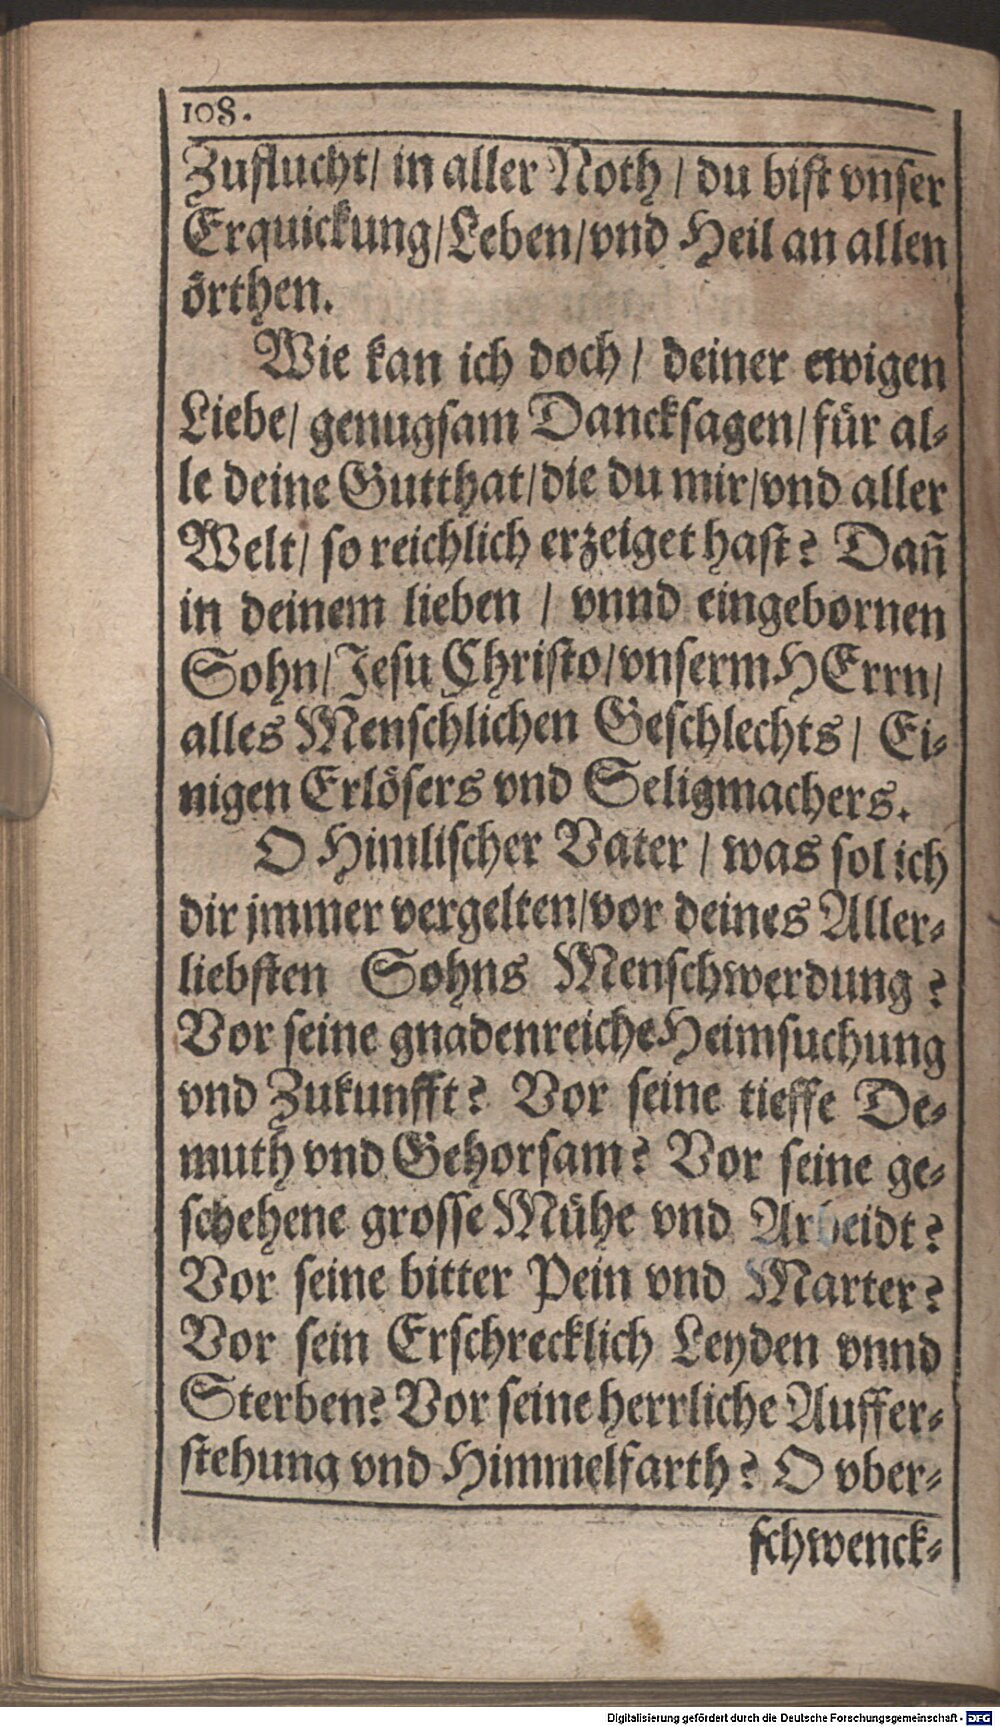 108.
Zuflucht/ in aller Noth / du bist vnser
Erquickung/Leben/vnd Heil an allen
örthen.
Wie kan ich doch / deiner ewigen
Liebe/ genugsam Dancksagen/für al-
le deine Gutthat/die du mir/vnd aller
Welt/ so reichlich erzeiget hast? Dañ
in deinem lieben / vnnd eingebornen
Sohn/Jesu Christo/vnserm HErrn/
alles Menschlichen Geschlechts/ Ei-
nigen Erlösers vnd Seligmachers.
O Himlischer Vater / was sol ich
dir jmmer vergelten/vor deines Aller-
liebsten Sohns Menschwerdung?
Vor seine gnadenreiche Heimsuchung
vnd Zukunfft? Vor seine tieffe De-
muth vnd Gehorsam? Vor seine ge-
schehene grosse Mühe vnd Arbeidt?
Vor seine bitter Pein vnd Marter?
Vor sein Erschrecklich Leyden vnnd
Sterben? Vor seine herrliche Auffer-
stehung vnd Himmelfarth? O vber-
schwenck-
Digitalisierung gefördert durch die Deutsche Forschungsgemeinschaft - DFG